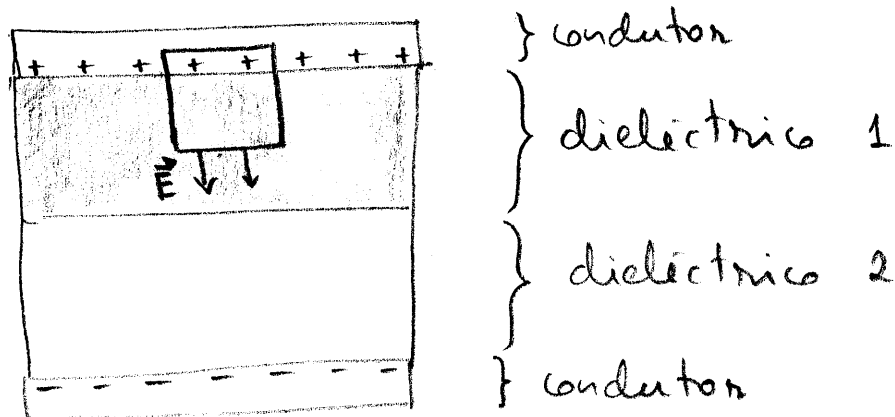 } condutor
+ + + + + + + +
} dieléctrico 1
E
} dieléctrico 2
- - - - - - - -
} condutor